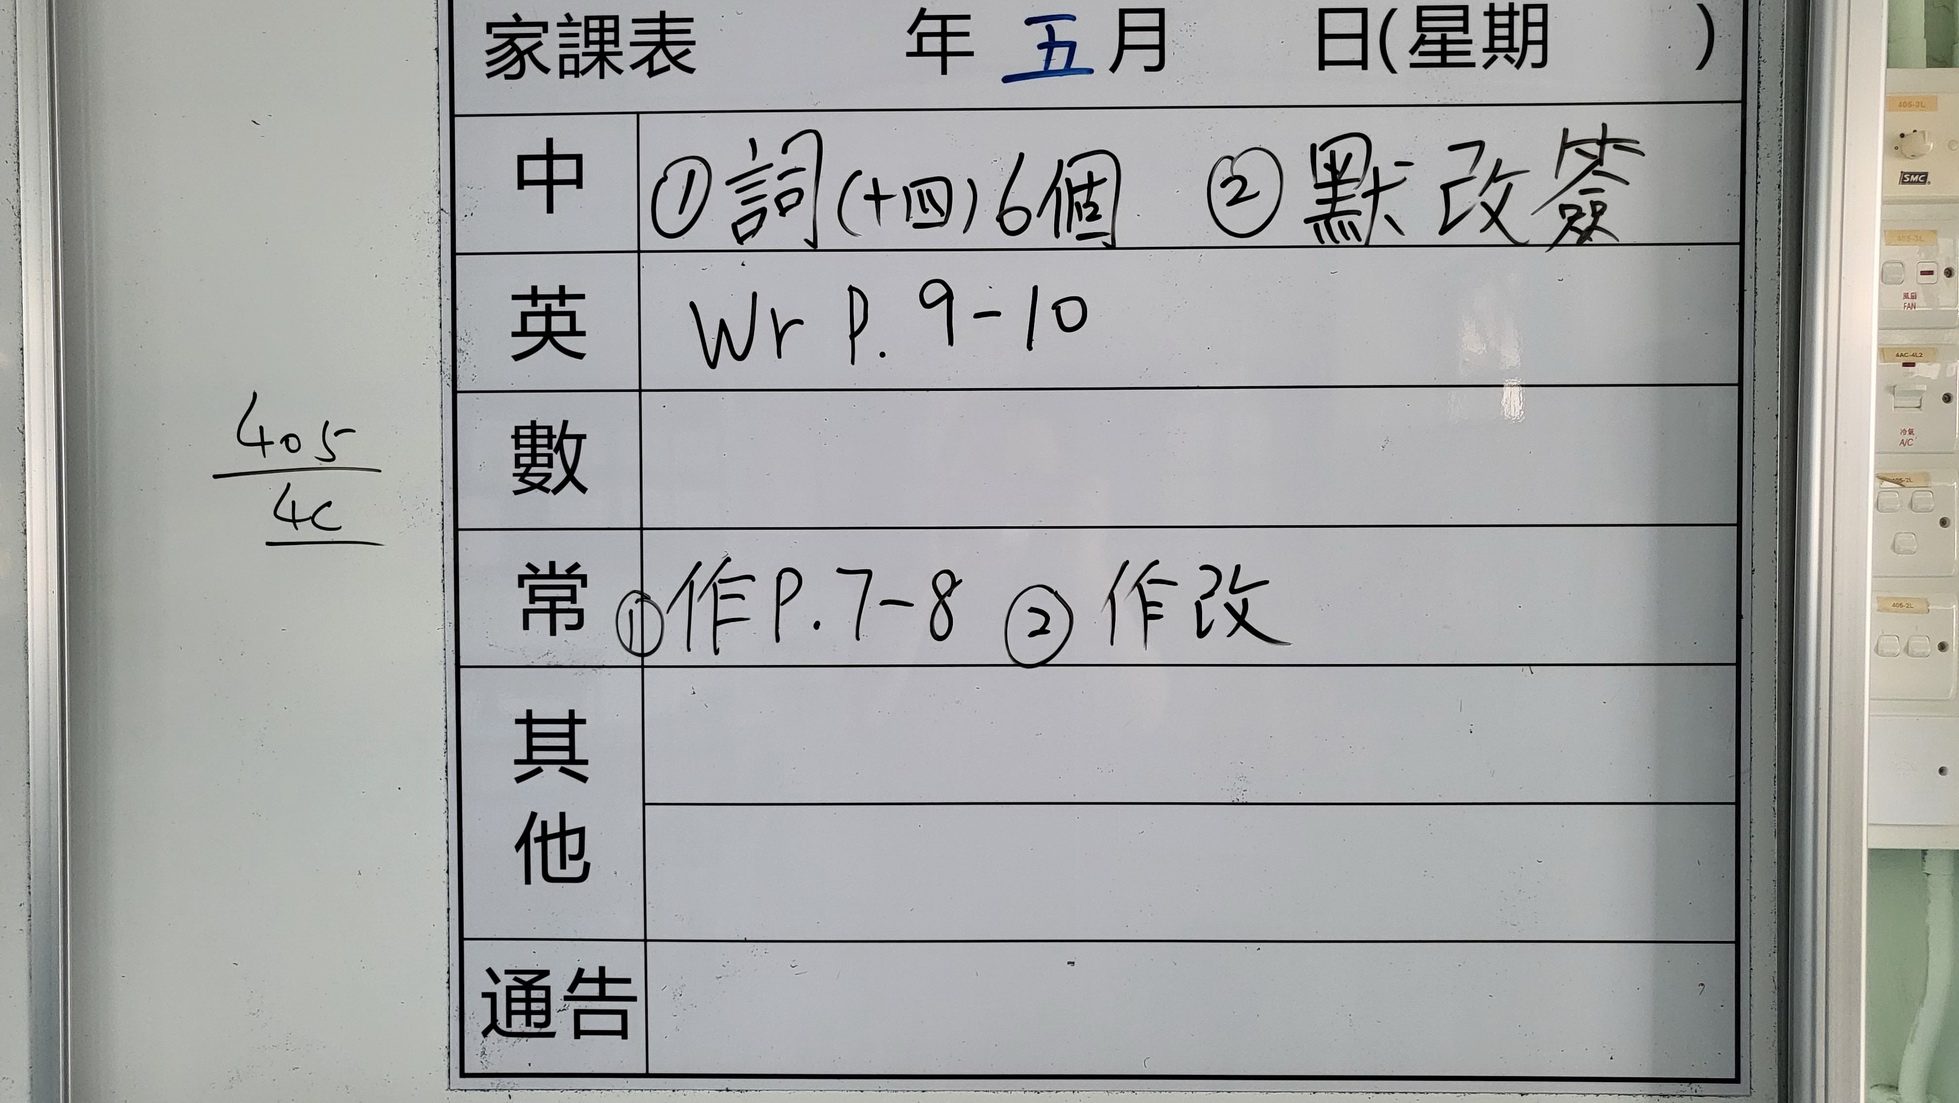 家課表 年 五 月 日(星期 )
中 ①詞(十四)6個 ②默改簽
英 Wr P. 9-10
數
常 ①作P.7-8 ②作改
其他
通告
405
4C
SMC
風扇
FAN
4AC-4L2
冷氣
A/C
405-2L